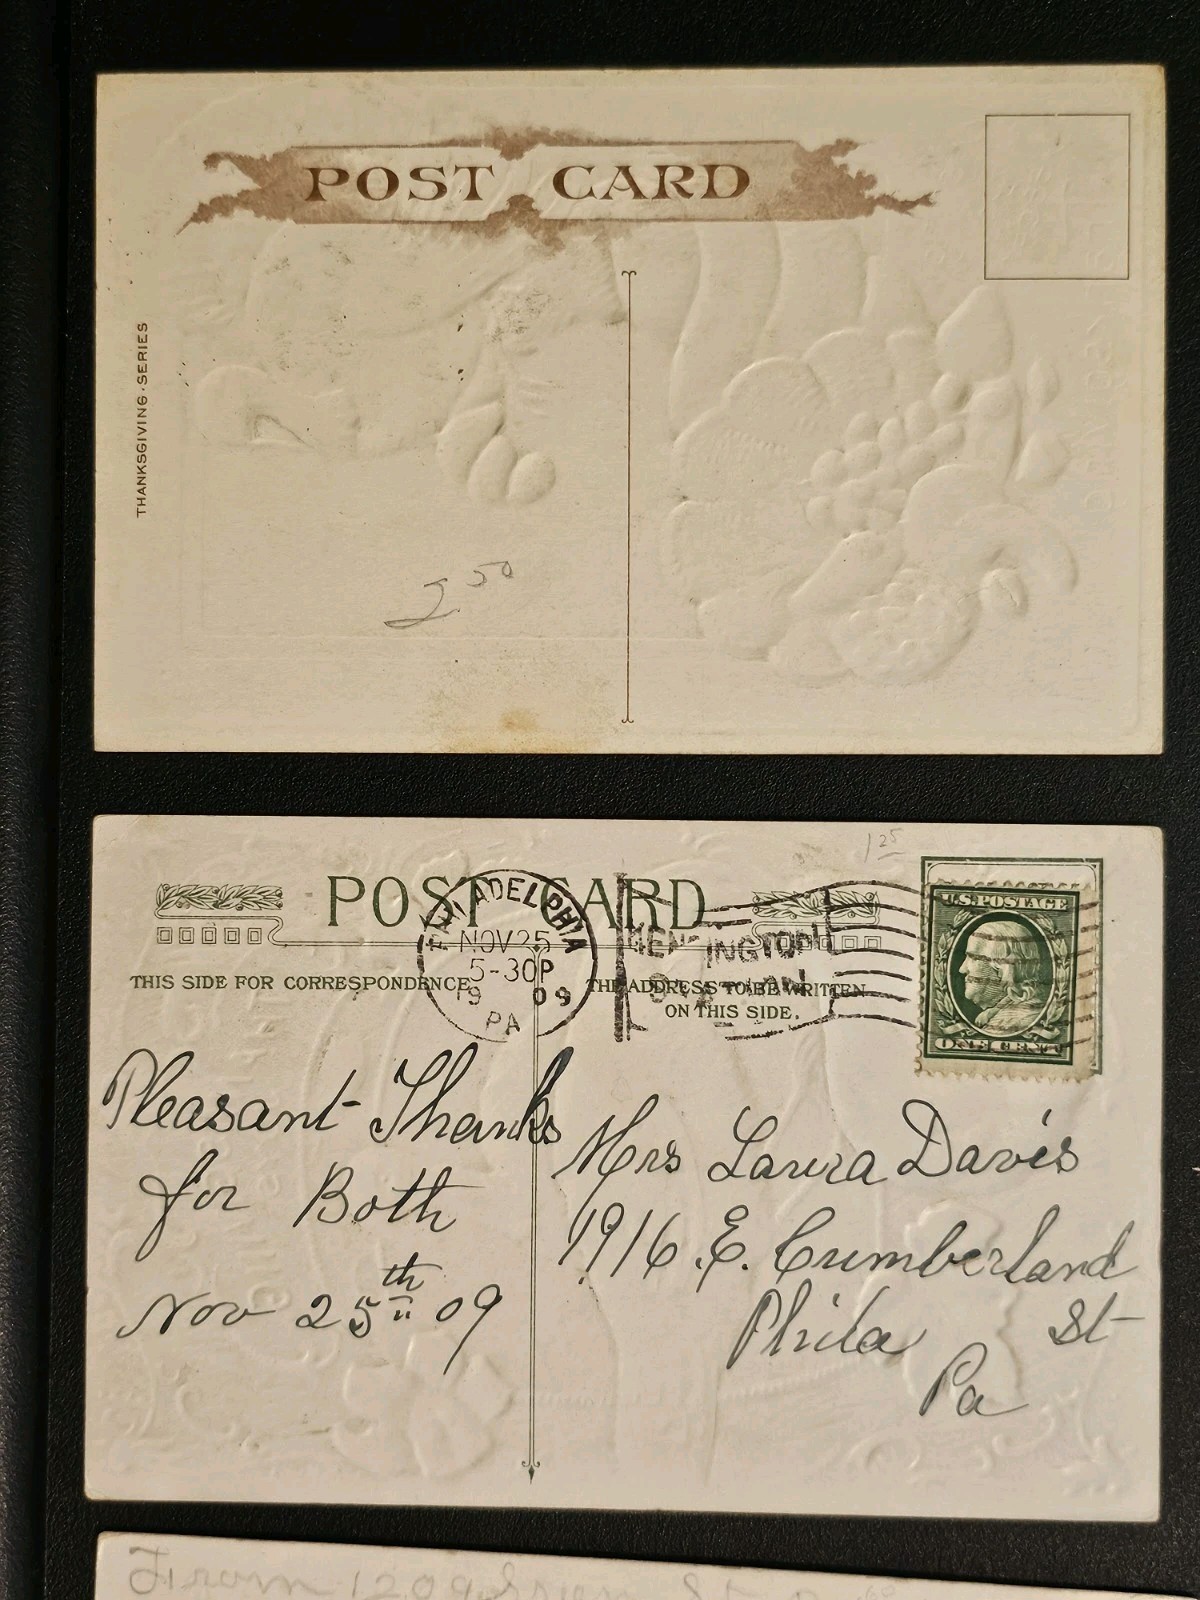 POST CARD
THANKSGIVING · SERIES
2 50
1 25
POST CARD
U.S. POSTAGE
ONE CENT
PHILADELPHIA
NOV 25
5-30P
19 09
PA
KENSINGTON
THIS SIDE FOR CORRESPONDENCE
THE ADDRESS TO BE WRITTEN
ON THIS SIDE.
Pleasant Thanks
for Both
Nov 25th 09
Mrs Laura Davis
1916 E. Cumberland
St
Phila
Pa
From 1209
St